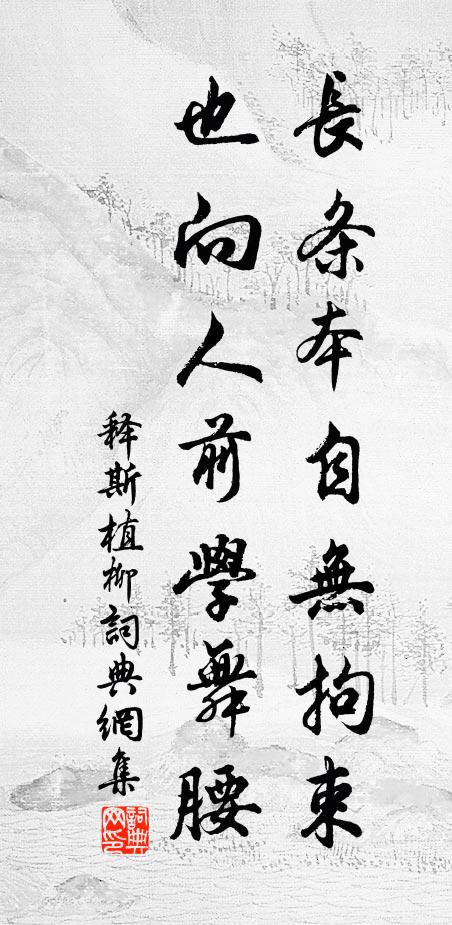 長条本自無拘束
也向人前學舞腰
释斯植柳詞典網集
詞典網印